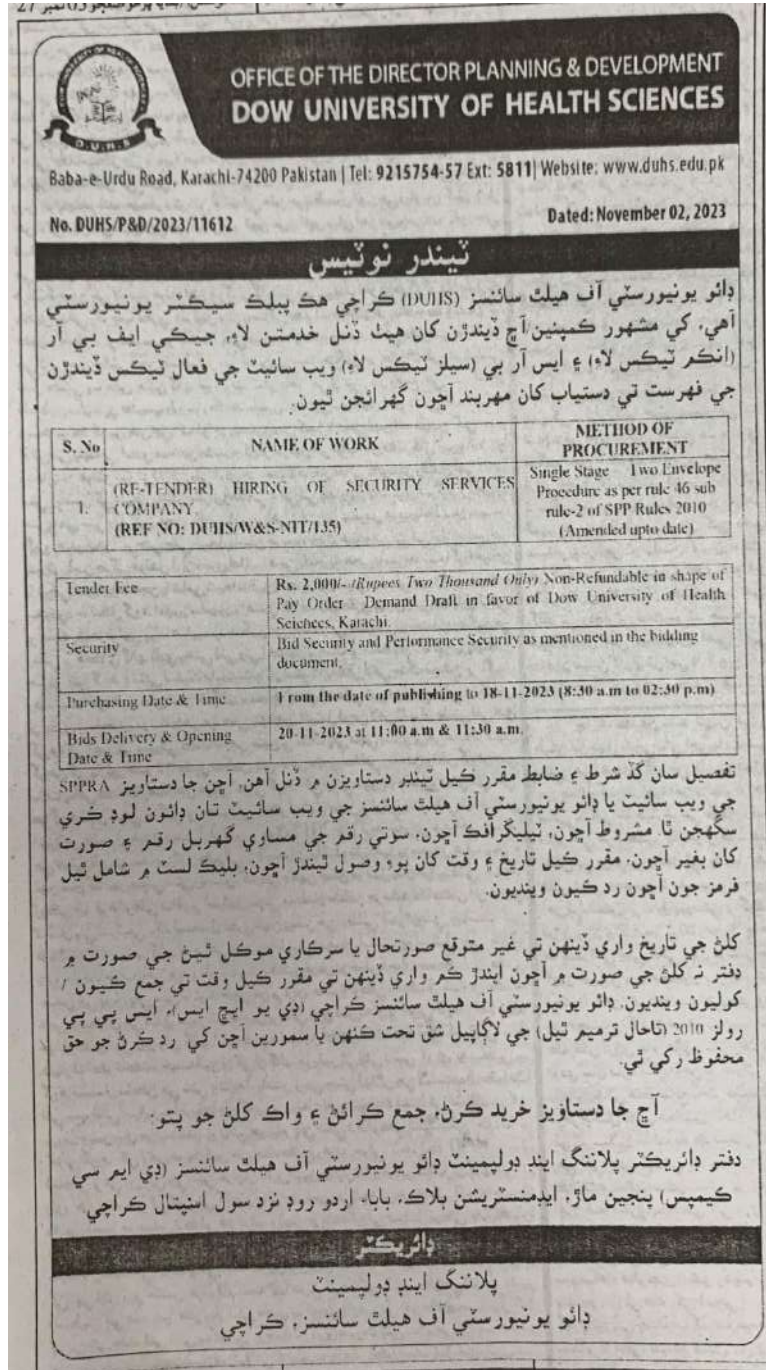 OFFICE OF THE DIRECTOR PLANNING & DEVELOPMENT
DOW UNIVERSITY OF HEALTH SCIENCES
D.U.H.S
Baba-e-Urdu Road, Karachi-74200 Pakistan | Tel: 9215754-57 Ext: 5811| Website: www.duhs.edu.pk
No. DUHS/P&D/2023/11612
Dated: November 02, 2023
ٽيندر نوٽيس
ڊائو يونيورسٽي آف هيلٿ سائنسز (DUHS) ڪراچي هڪ پبلڪ سيڪٽر يونيورسٽي
آهي، کي مشهور ڪمپنين/آڇ ڏيندڙن کان هيٺ ڏنل خدمتن لاءِ، جيڪي ايف بي آر
(انڪم ٽيڪس لاءِ) ۽ ايس آر بي (سيلز ٽيڪس لاءِ) ويب سائيٽ جي فعال ٽيڪس ڏيندڙن
جي فهرست تي دستياب کان مهربند آڇون گهرائجن ٿيون.
S. No
NAME OF WORK
METHOD OF
PROCUREMENT
1.
(RE-TENDER) HIRING OF SECURITY SERVICES
COMPANY.
(REF NO: DUHS/W&S-NIT/135)
Single Stage Two Envelope
Procedure as per rule 46 sub
rule-2 of SPP Rules 2010
(Amended upto date)
Tender Fee
Rs. 2,000/- (Rupees Two Thousand Only) Non-Refundable in shape of
Pay Order / Demand Draft in favor of Dow University of Health
Sciences, Karachi.
Security
Bid Security and Performance Security as mentioned in the bidding
document.
Purchasing Date & Time
From the date of publishing to 18-11-2023 (8:30 a.m to 02:30 p.m)
Bids Delivery & Opening
Date & Time
20-11-2023 at 11:00 a.m & 11:30 a.m.
تفصيل سان گڏ شرط ۽ ضابط مقرر ڪيل ٽينڊر دستاويزن ۾ ڏنل آهن. آڇن جا دستاويز SPPRA
جي ويب سائيٽ يا ڊائو يونيورسٽي آف هيلٿ سائنسز جي ويب سائيٽ تان ڊائون لوڊ ڪري
سگهجن ٿا مشروط آڇون، ٽيليگرافڪ آڇون، سوتي رقم جي مساوي گهربل رقم ۽ صورت
کان بغير آڇون، مقرر ڪيل تاريخ ۽ وقت کان پوءِ وصول ٿيندڙ آڇون، بليڪ لسٽ ۾ شامل ٿيل
فرمز جون آڇون رد ڪيون وينديون.
کلڻ جي تاريخ واري ڏينهن تي غير متوقع صورتحال يا سرڪاري موڪل ٿيڻ جي صورت ۾
دفتر نه کلڻ جي صورت ۾ آڇون ايندڙ ڪم واري ڏينهن تي مقرر ڪيل وقت تي جمع ڪيون /
کوليون وينديون. ڊائو يونيورسٽي آف هيلٿ سائنسز ڪراچي (ڊي يو ايڇ ايس)، ايس پي پي
رولز 2010 (تاحال ترميم ٿيل) جي لاڳاپيل شق تحت ڪنهن يا سمورين آڇن کي رد ڪرڻ جو حق
محفوظ رکي ٿي.
آڇ جا دستاويز خريد ڪرڻ، جمع ڪرائڻ ۽ واڪ کلڻ جو پتو:
دفتر ڊائريڪٽر پلاننگ اينڊ ڊولپمينٽ ڊائو يونيورسٽي آف هيلٿ سائنسز (ڊي ايم سي
ڪيمپس) پنجين ماڙ، ايڊمنسٽريشن بلاڪ، باباءِ اردو روڊ نزد سول اسپتال ڪراچي
ڊائريڪٽر
پلاننگ اينڊ ڊولپمينٽ
ڊائو يونيورسٽي آف هيلٿ سائنسز، ڪراچي